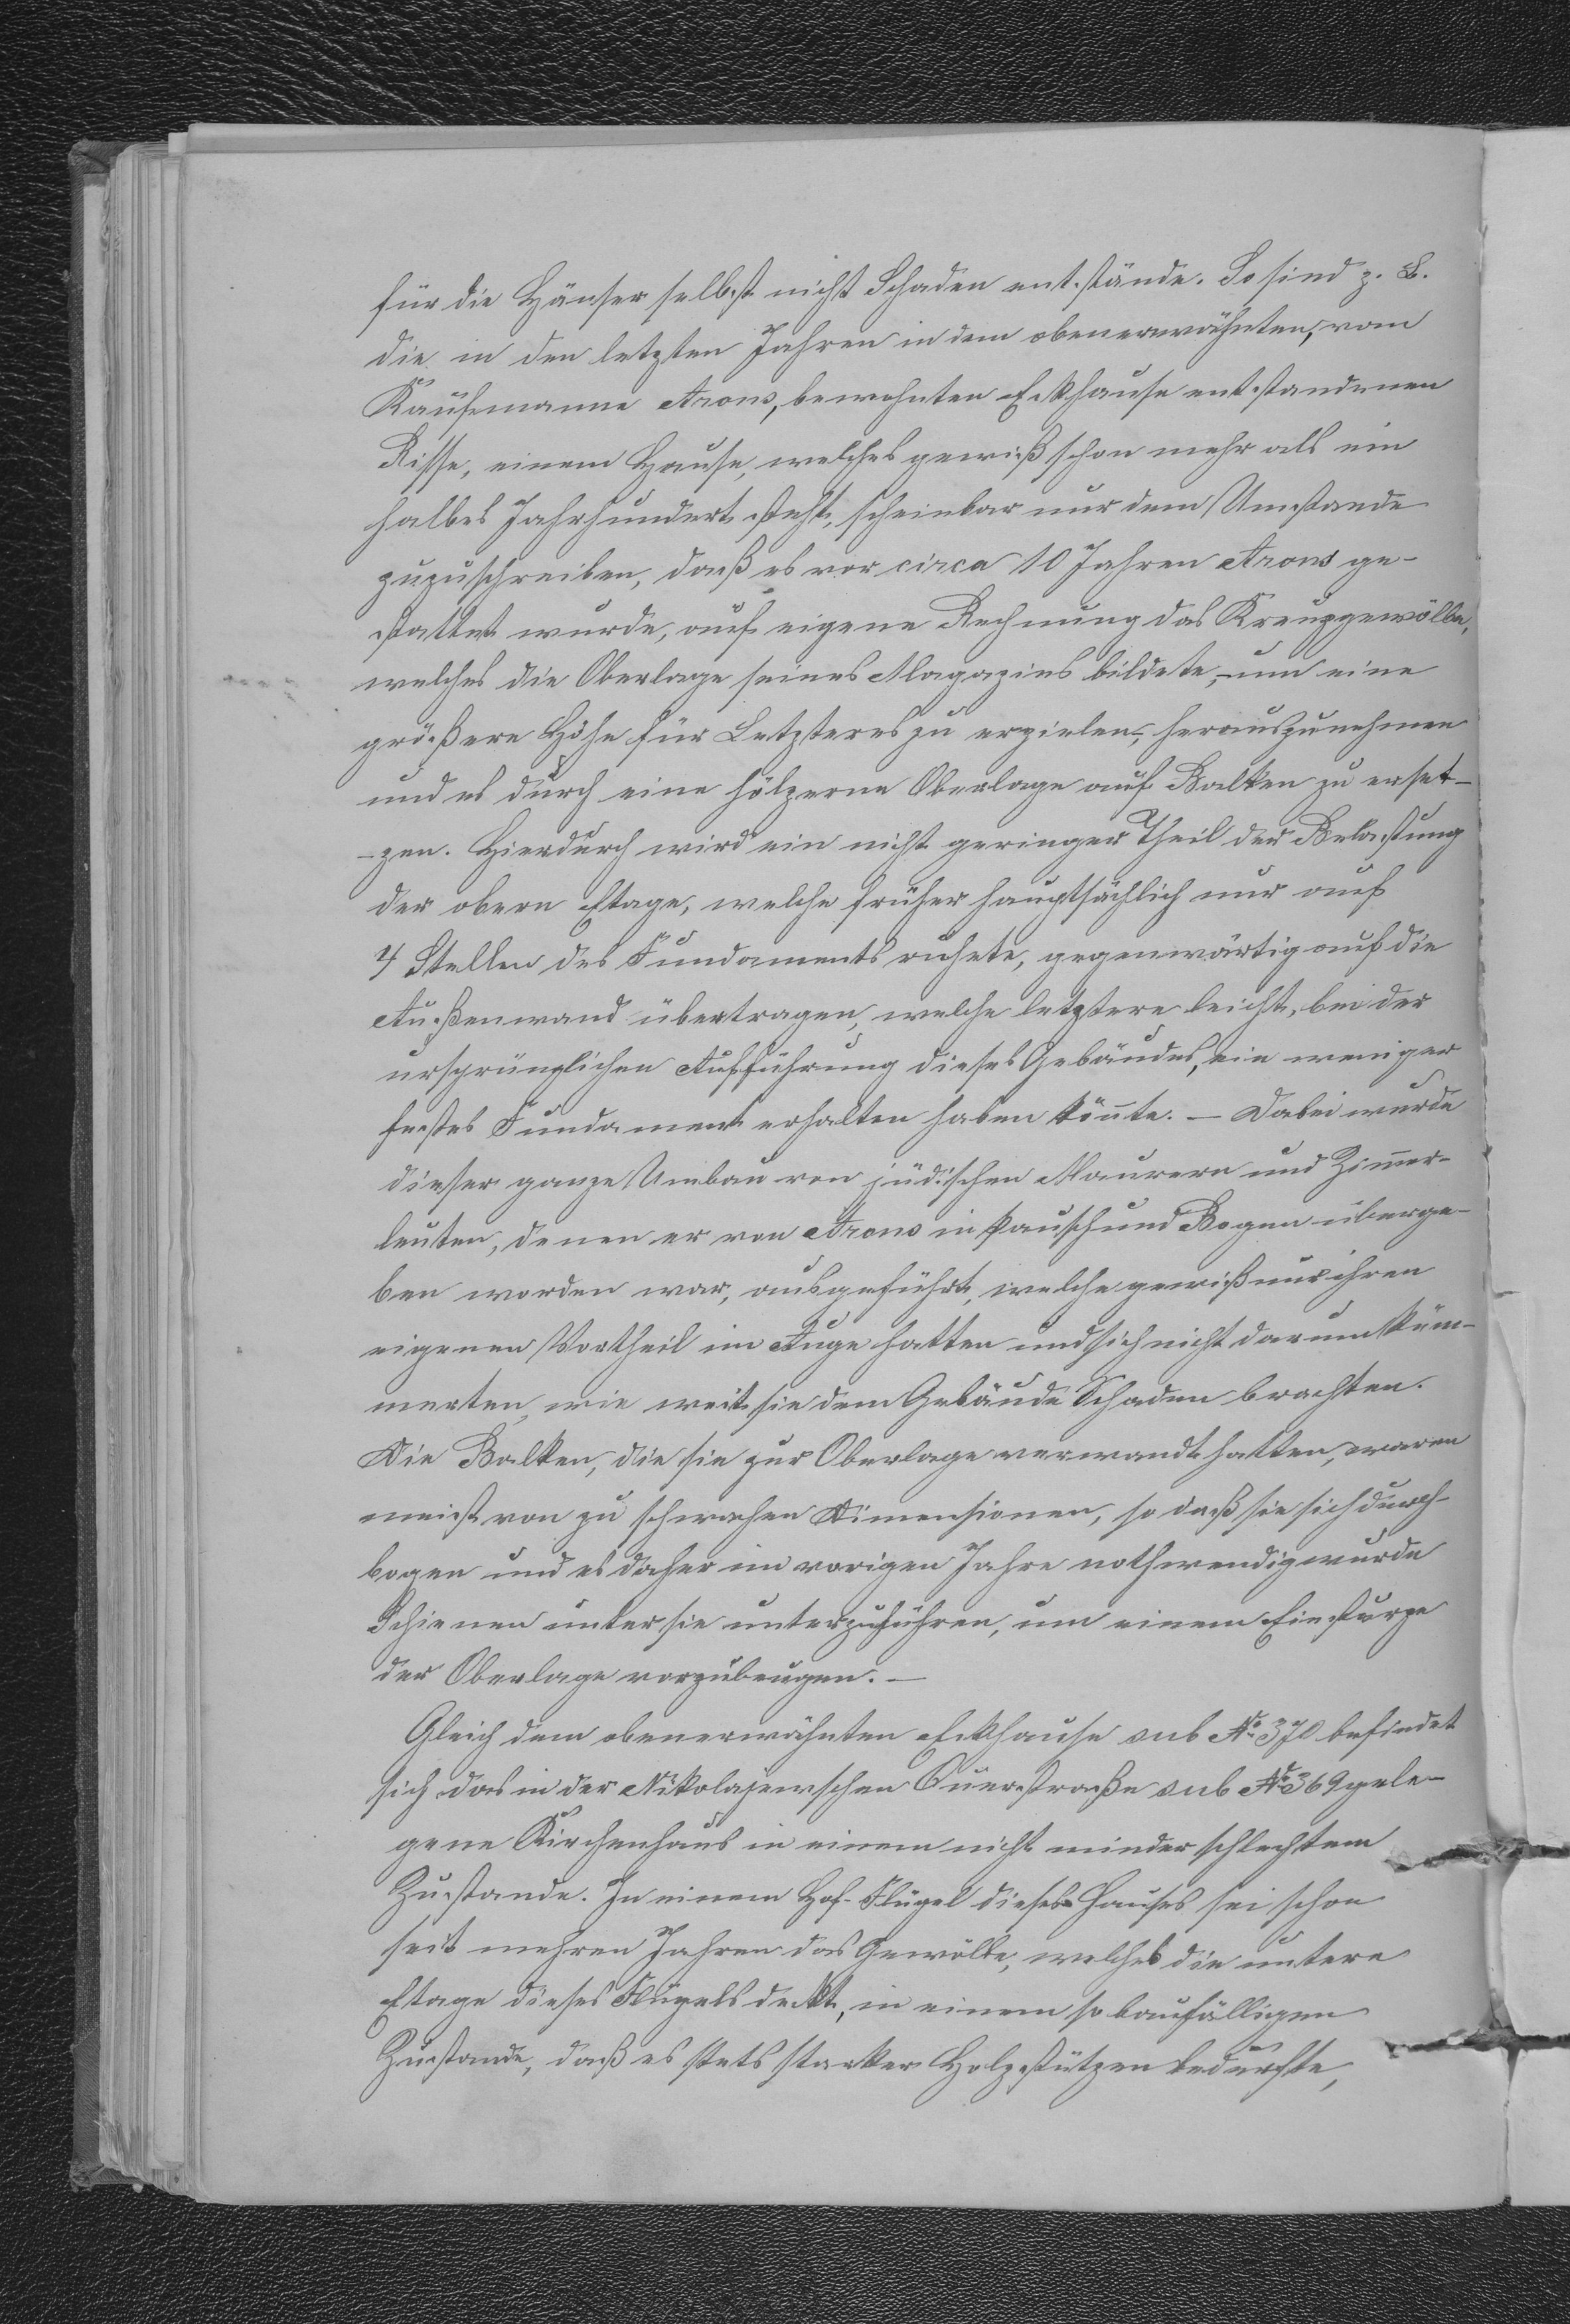 für die Häuser selbst nicht Schaden entstände. So sind z. B.
die in den letzten Jahren in dem obenerwähnten, vom
Kaufmanne Arons, bewohnten Eckhause entstandenen
Risse, einem Hause, welches gewiß schon mehr als ein
halbes Jahrhundert steht, scheinbar nur dem Umstande
zuzuschreiben, daß es vor circa 10 Jahren Arons ge-
stattet wurde, auf eigene Rechnung das Kreuzgewölbe,
welches die Oberlage seines Magazins bildete, – um eine
größere Höhe für Letzteres zu erzielen –, herauszunehmen
und es durch eine hölzerne Oberlage auf Balken zu erset-
-zen. Hierdurch wird ein nicht geringer Theil der Belastung
der obern Etage, welche früher hauptsächlich nur auf
4 Stellen des Fundaments ruhete, gegenwärtig auf die
Außenwand übertragen, welche letztere leicht, bei der
ursprünglichen Aufführung dieses Gebäudes, ein weniger
festes Fundament erhalten haben könnte. – Dabei wurde
dieser ganze Umbau von jüdischen Maurern und Zimmer-
leuten, denen er von Arons in Pausch und Bogen überge-
ben worden war, ausgeführt, welche gewiß nur ihren
eigenen Vortheil im Auge hatten und sich nicht darum küm-
merten, wie weit sie dem Gebäude Schaden brachten.
Die Balken, die sie zur Oberlage verwandt hatten, waren
meist von zu schwachen Dimensionen, so daß sie sich durch-
bogen und es daher im vorigen Jahre nothwendig wurde
Schienen unter sie unterzuführen, um einem Einsturze
der Oberlage vorzubeugen. –
Gleich dem obenerwähnten Eckhause sub № 370 befindet
sich das in der Nikolajewschen Querstraße sub № 369 gele-
gene Kirchenhaus in einem nicht minder schlechtem
Zustande. In einem Hof-Flügel dieses Hauses sei schon
seit mehren Jahren das Gewölbe, welches die untere
Etage dieses Flügels deckt, in einem so baufälligen
Zustande, daß es stets starker Holzstützen bedurfte,